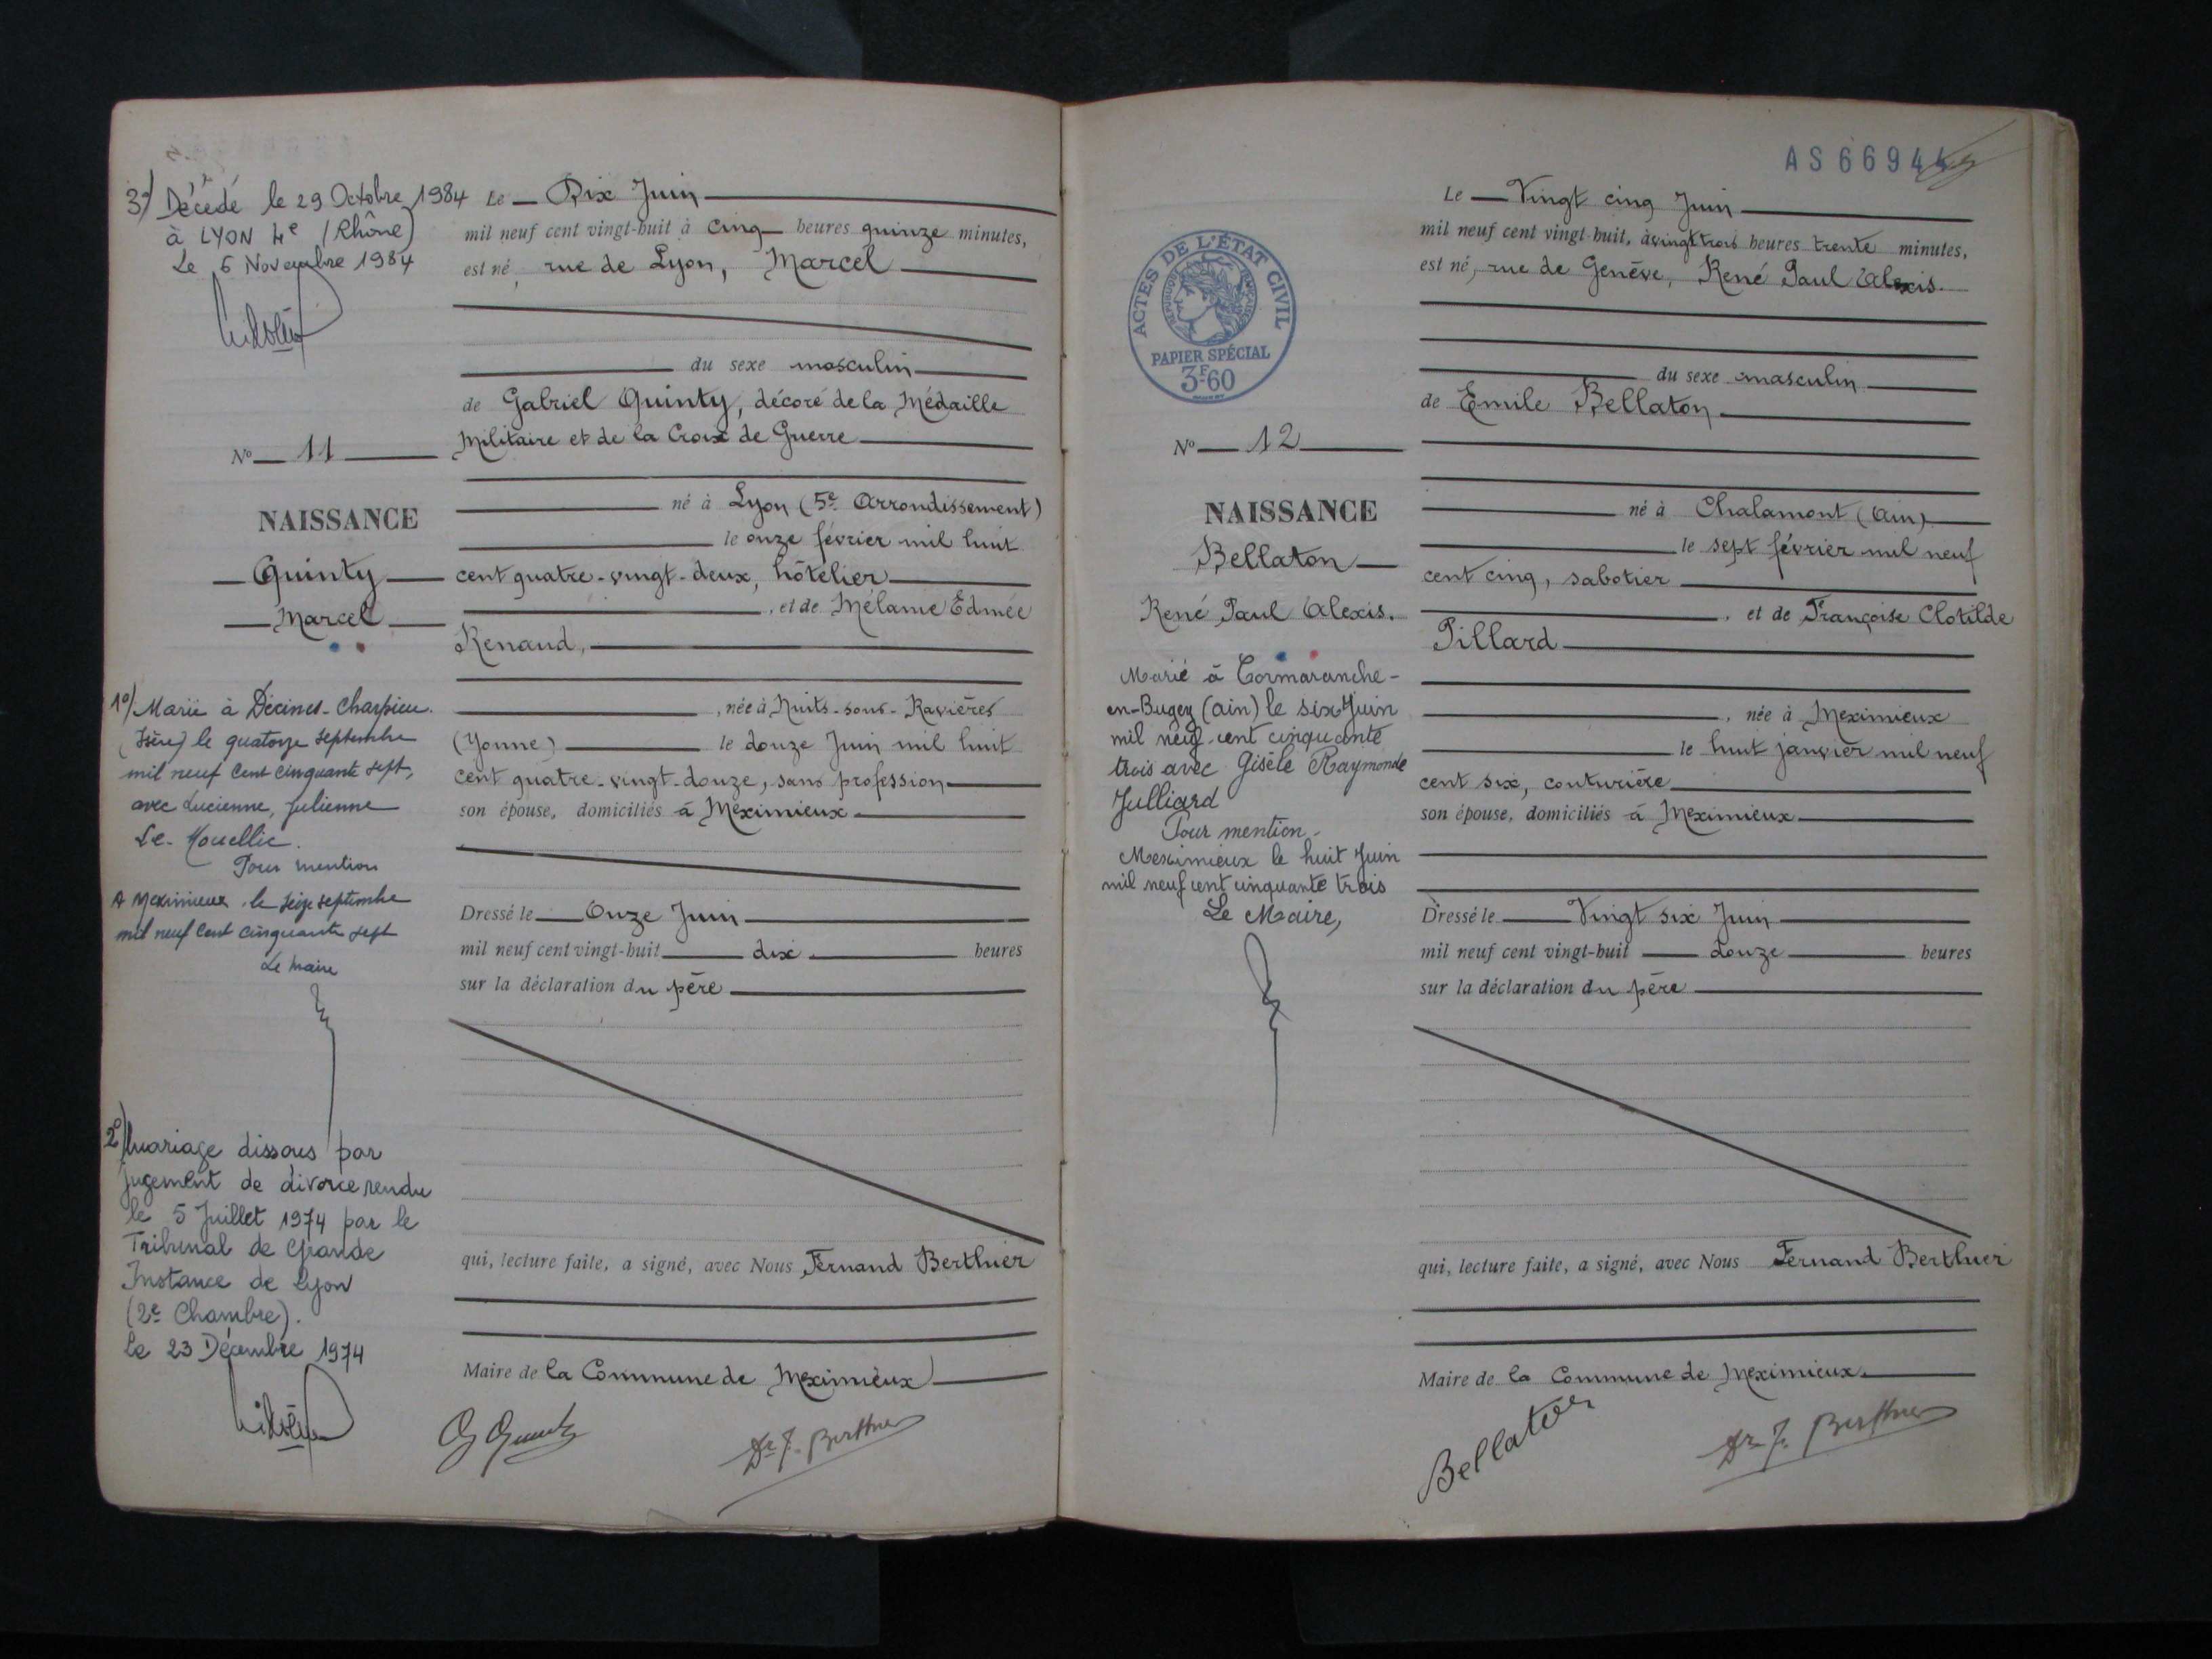 3°) Décédé le 29 Octobre 1984
à LYON 4e (Rhône)
Le 6 Novembre 1984
N° 11
NAISSANCE
Quinty
Marcel
1°/ Marié à Décines-Charpieu
(Isère) le quatorze septembre
mil neuf cent cinquante sept,
avec Lucienne, Julienne
Le Mouellic.
Pour mention
A Meximieux, le seize septembre
mil neuf cent cinquante sept
Le Maire
2°) Mariage dissous par
jugement de divorce rendu
le 5 Juillet 1974 par le
Tribunal de Grande
Instance de Lyon
(2e Chambre).
Le 23 Décembre 1974
Le Dix Juin
mil neuf cent vingt-huit à cinq heures quinze minutes,
est né, rue de Lyon, Marcel
du sexe masculin
de Gabriel Quinty, décoré de la Médaille
Militaire et de la Croix de Guerre
né à Lyon (5e Arrondissement)
le onze février mil huit
cent quatre-vingt-deux, hôtelier
, et de Mélanie Edmée
Renaud,
, née à Nuits-sous-Ravières
(Yonne) le douze Juin mil huit
cent quatre-vingt-douze, sans profession
son épouse, domiciliés à Meximieux
Dressé le Onze Juin
mil neuf cent vingt-huit dix heures
sur la déclaration du père
qui, lecture faite, a signé, avec Nous Fernand Berthier
Maire de la Commune de Meximieux
G Quinty
Dr F. Berthier
AS 6694
ACTES DE L'ÉTAT CIVIL
RÉPUBLIQUE FRANÇAISE
PAPIER SPÉCIAL
3F60
N° 12
NAISSANCE
Bellaton
René Paul Alexis.
Marié à Cormaranche-
en-Bugey (Ain) le six Juin
mil neuf cent cinquante
trois avec Gisèle Raymonde
Julliard
Pour mention.
Meximieux le huit Juin
mil neuf cent cinquante trois
Le Maire,
Le Vingt cinq Juin
mil neuf cent vingt-huit, à vingt trois heures trente minutes,
est né, rue de Genève, René Paul Alexis.
du sexe masculin
de Emile Bellaton
né à Chalamont (Ain)
le sept février mil neuf
cent cinq, sabotier
, et de Françoise Clotilde
Pillard
, née à Meximieux
le huit janvier mil neuf
cent six, couturière
son épouse, domiciliés à Meximieux
Dressé le Vingt six Juin
mil neuf cent vingt-huit douze heures
sur la déclaration du père
qui, lecture faite, a signé, avec Nous Fernand Berthier
Maire de la Commune de Meximieux.
Bellaton
Dr F. Berthier